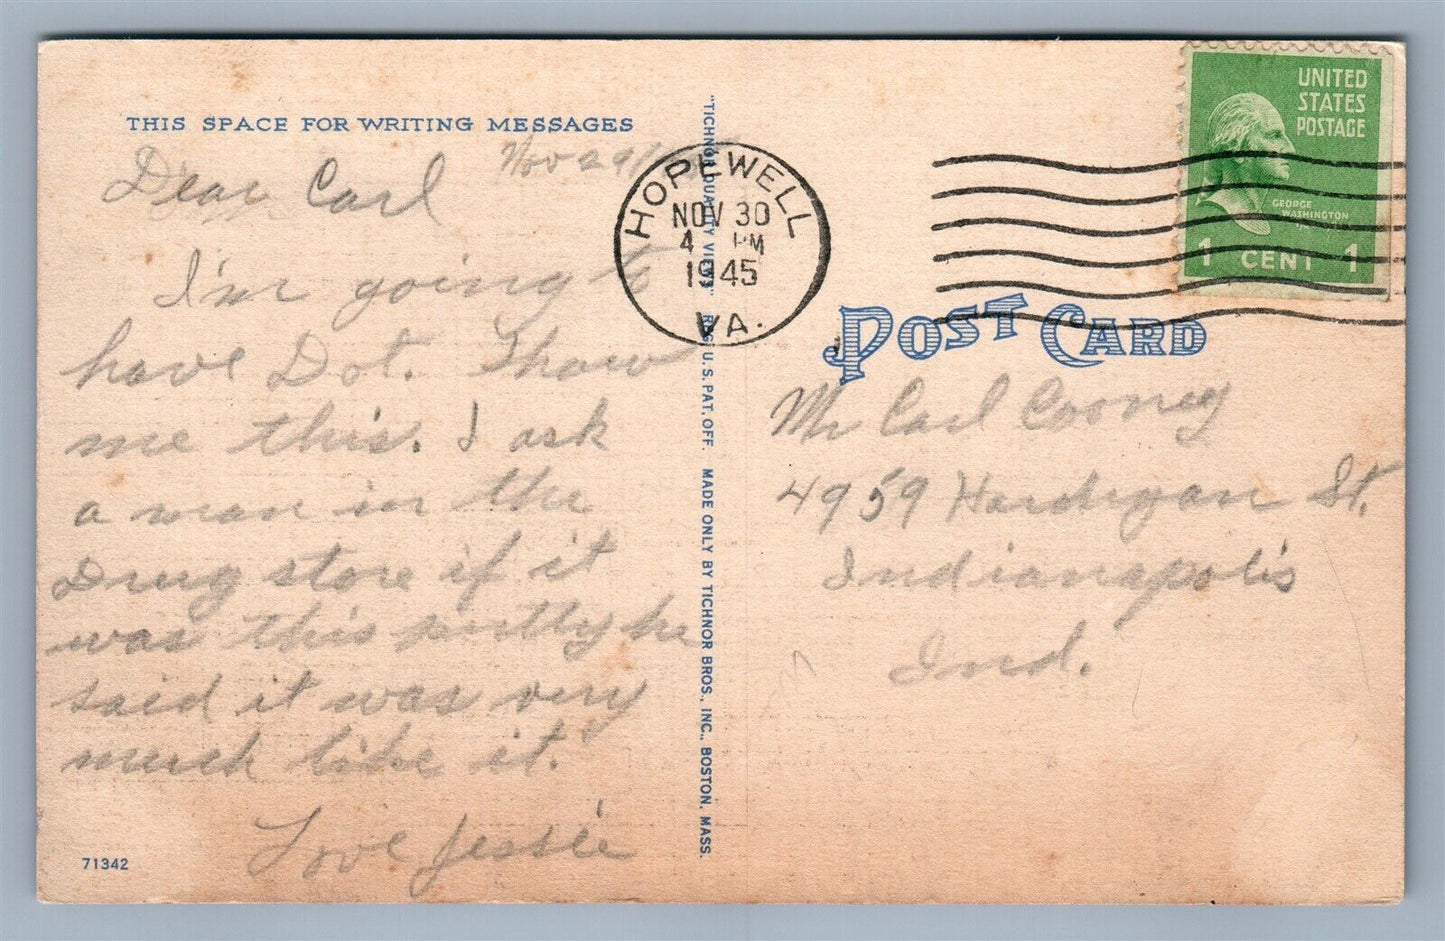 THIS SPACE FOR WRITING MESSAGES
Nov 29
Dear Carl
I'm going to
have Dot. Show
me this. I ask
a man in the
Drug store if it
was this pretty he
said it was very
much like it.
Love Jessie
71342
"TICHNOR QUALITY VIEWS" REG. U.S. PAT. OFF. MADE ONLY BY TICHNOR BROS., INC., BOSTON, MASS.
HOPEWELL
NOV 30
4 PM
1945
VA.
UNITED
STATES
POSTAGE
GEORGE
WASHINGTON
1 CENT 1
POST CARD
Mr Carl Cooney
4959 Hardegan St.
Indianapolis
Ind.